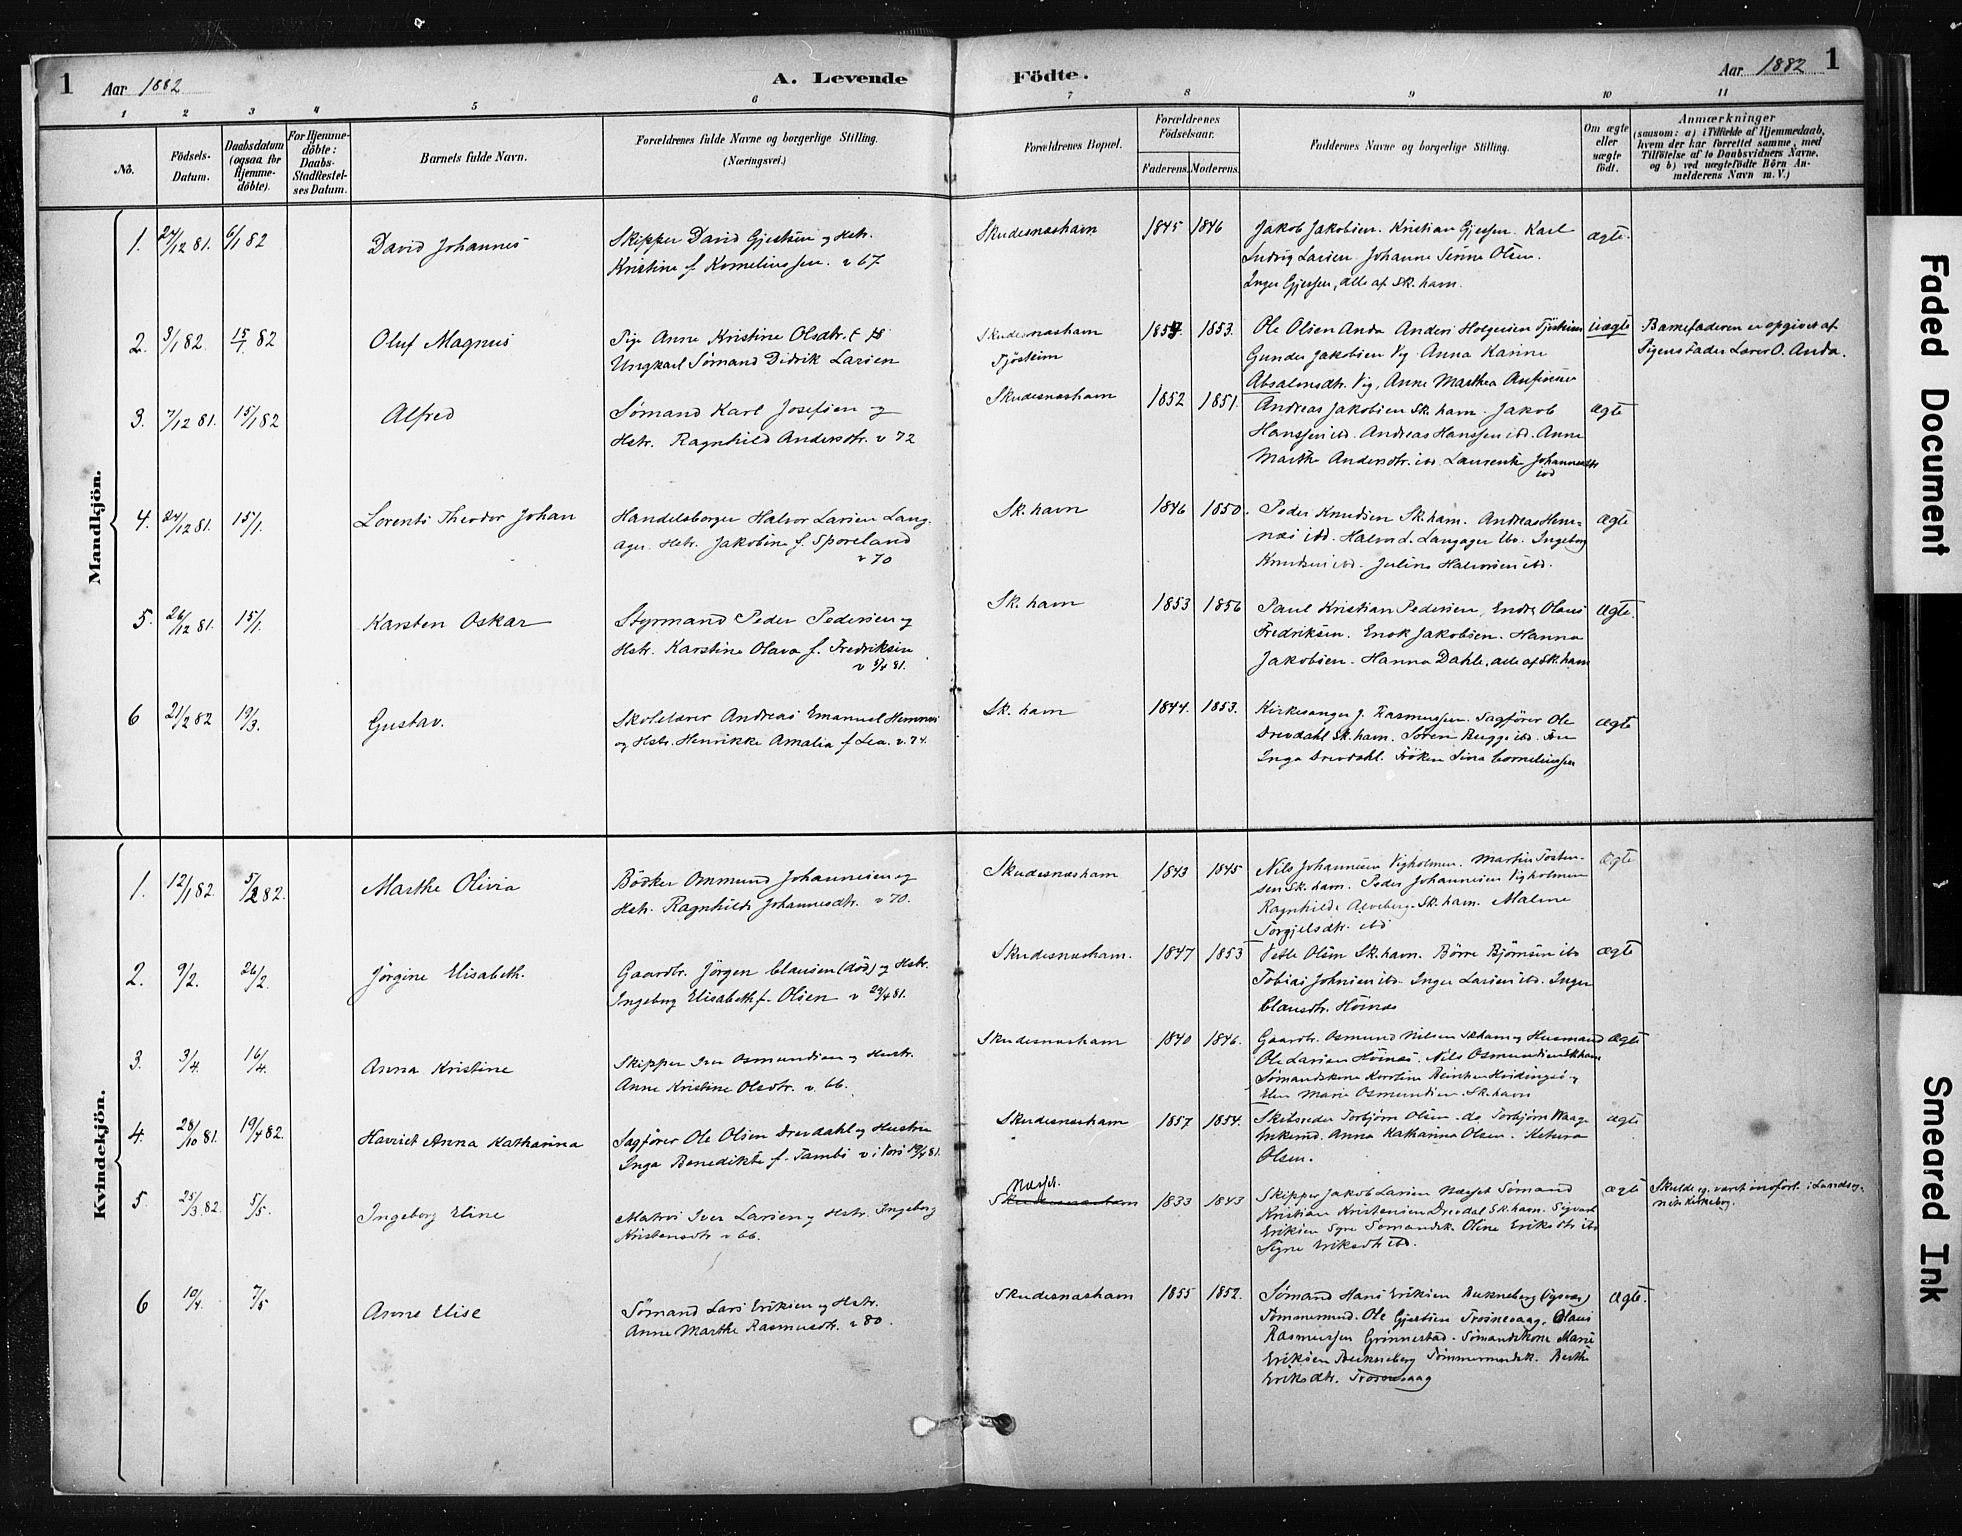 1 Aar 1882 A. Levende Födte. Aar 1882 1
1 2 3 4 5 6 7 8 9 10 11
No.
Födsels-
Datum.
Daabsdatum
(ogsaa for
Hjemme-
döbte).
For Hjemme-
döbte:
Daabs-
Stadfæstel-
ses Datum.
Barnets fulde Navn.
Forældrenes fulde Navne og borgerlige Stilling.
(Næringsvei.)
Forældrenes Bopæl.
Forældrenes
Födselsaar.
Faderens. Moderens.
Faddernes Navne og borgerlige Stilling.
Om ægte
eller
uægte
født.
Anmærkninger
(saasom: a) i Tilfælde af Hjemmedaab,
hvem der har forrettet samme, med
Tilföielse af to Daabsvidners Navne,
og b) ved uægtefödte Börn An-
melderens Navn m. V.)
Mandkjön.
1. 27/12 81. 6/1 82 David Johannes
Skipper David Gjertsen og Hstr.
Kristine f. Korneliussen. v 67.
Skudesnæshavn 1845 1846
Jakob Jakobsen. Kristian Gjertsen. Karl
Ludvig Larsen. Johanne Olsen.
Inger Gjertsen, alle af Sk.havn.
ægte.
2. 3/1 82. 15/1 82 Oluf Magnus
Pige Anne Kristine Olsdtr.
Ungkarl Sømand Didrik Larsen
Skudesnæshavn
Tjösteim
1857 1853.
Ole Olsen Anda Anders Holgersen Tjösteim
Gunder Jakobsen Vig. Anna Karine
Absalonsdtr. Vig, Anne Marthea
uægte
Barnefaderen er opgivet af
Pigens Fader Lærer O. Anda.
3. 7/12 81. 15/1 82 Alfred
Sömand Karl Josefsen og
Hstr. Ragnhild Andersdtr. v 72
Skudesnæshavn 1852 1851.
Andreas Jakobsen Sk.havn. Jakob
Hanssen ibd. Andreas Hanssen ibd. Anne
Marthe Andersdtr. ibd. Laurentse Johannesdtr
ibd
ægte
4. 24/12 81. 15/1. Lorents Theodor Johan
Handelsborger Halvor Larsen Lang-
ager. Hstr. Jakobine f. Sporeland
v 70
Sk.havn 1846 1850.
Peder Knudsen Sk.havn. Andreas Hem-
næs ibd. Halvor L. Langager ibd. Ingeborg
Knudsen ibd. Juline Halvorsen ibd.
ægte
5. 26/12 81. 15/1. Karsten Oskar
Styrmand Peder Pedersen og
Hstr. Karstine Olava f. Fredriksen
v 8/4 81.
Sk.havn 1853 1856
Paul Kristian Pedersen, Endre Olaus
Fredriksen. Enok Jakobsen. Hanna
Jakobsen. Hanna Dahle, alle af Sk.havn
ægte.
6 21/2 82 19/3. Gustav.
Skolelærer Andreas Emanuel Hemnes
og Hstr. Henrikke Amalia f. Lea. v. 74.
Sk.havn 1844. 1853.
Kirkesanger J. Rasmussen. Sagfører Ole
Drevdahl Sk.havn. Søren Bugge ibd. Fru
Inga Drevdahl. Fröken Sina Corneliussen
ægte
Kvindekjön.
1. 12/1 82. 5/2 82. Marthe Olivia
Bödker Ommund Johannesen og
Hstr. Ragnhilds Johannesdtr. v 70.
Skudesnæshavn 1843 1845
Nils Johannesen Vigholmen. Martin Tosten-
sen Sk.havn. Peder Johannesen Vigholmen
Ragnhilde Alveberg. Sk.havn. Malene
Torgjelsdtr. ibd
ægte
2. 9/2. 26/2. Jörgine Elisabeth.
Gaardbr. Jörgen Clausen (död) og Hstr.
Ingeborg Elisabeth f. Olsen v 29/4 81.
Skudesnæshavn. 1847 1853
Vetle Olsen Sk.havn. Börre Bjørnsen ibd
Tobias Johnsen ibd. Inger Larsen ibd. Inger
Clausdtr. Höinæs
ægte
3. 3/4. 16/4. Anna Kristine
Skipper Iver Osmundsen og Hustr.
Anne Kristine Olsdtr. v. 66.
Skudesnæshavn 1840 1846.
Gaardbr. Osmund Nilsen Sk.havn og Husmand
Ole Larsen Höinæs. Nils Osmundsen Sk.havn
Sømandskone Karoline
Ellen Marie Osmundsen Sk.havn
ægte
4. 28/10 81. 19/4 82. Harriet Anna Katharina
Sagfører Ole Olsen Drevdahl og Hustru
Inga Benedikte f. Tambs v i 19/4 81.
Skudesnæshavn 1857 1854.
Skibsreder Torbjørn Olsen. do. Torbjørn Waage
Enkemd. Anna Katharina Olsen. Ketura
Olsen.
ægte
5. 25/3 82. 5/5. Ingeborg Eline
Matros Iver Larsen og Hstr. Ingeborg
Kristensdtr v 66.
Næset.
Skudesnæshavn 1833 1843
Skipper Jakob Larsen Næset Sömand
Kristian Kristensen Drevdal Sk.havn. Sigvart
Eriksen Syre Sømandsk. Oline Eriksdtr ibd
Signe Eriksdtr ibd.
ægte
Skulde og været indfört i Landsog-
nets Kirkebog.
6 10/4. 7/5 Anne Elise
Sömand Lars Eriksen og Hstr.
Anne Marthe Rasmusdtr. v 80.
Skudesnæshavn 1855 1852.
Sømand Hans Eriksen
Tømmermd. Ole Gjertsen Trosnesvaag, Olaus
Rasmussen Grönnestad. Sømandskone Marie
Eriksen Tømmermdsk. Berthe
Eriksdtr. Trosnesvaag
ægte.
Faded Document
Smeared Ink